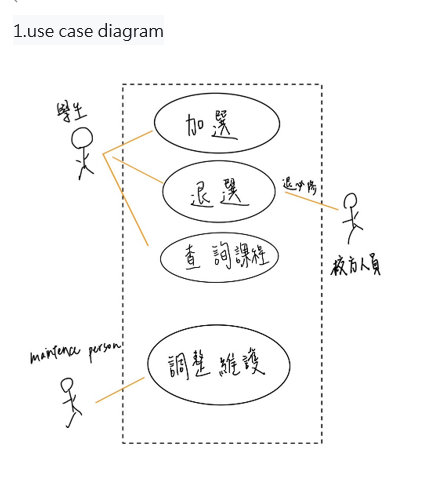 1.use case diagram
學生
加選
退選
退必修
查詢課程
校方人員
maintence person
調整維護